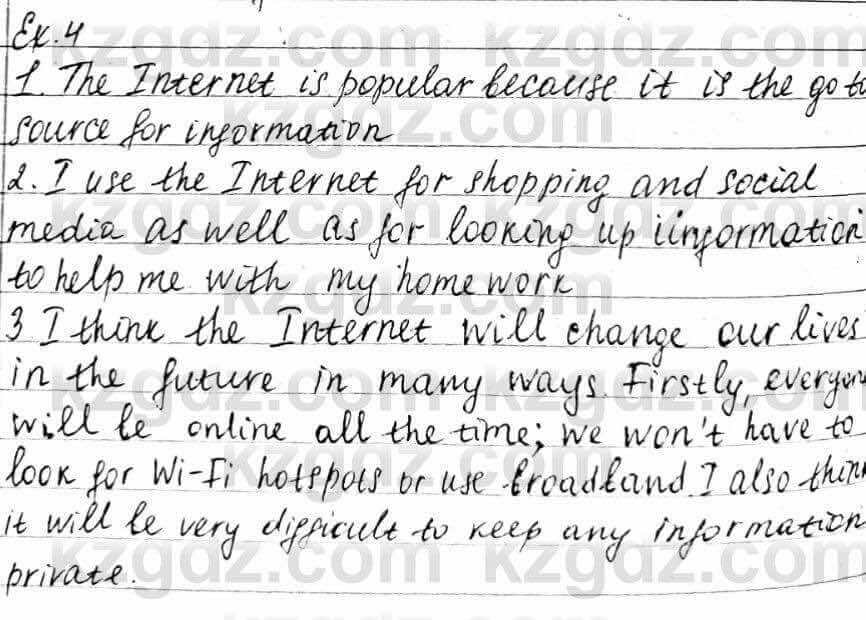 Ex.4
1. The Internet is popular because it is the go to
source for information
2. I use the Internet for shopping and social
media as well as for looking up iinformation
to help me with my home work
3 I think the Internet will change our lives
in the future in many ways. Firstly, everyone
will be online all the time; we won't have to
look for Wi-Fi hotspots or use broadband I also think
it will be very difficult to keep any information
private.
kzgdz.com kzgdz.com
kzgdz.com
kzgdz.com kzgdz.com
kzgdz.com
kzgdz.com kzgdz.com
kzgdz.com
kzgdz.com kzgdz.com